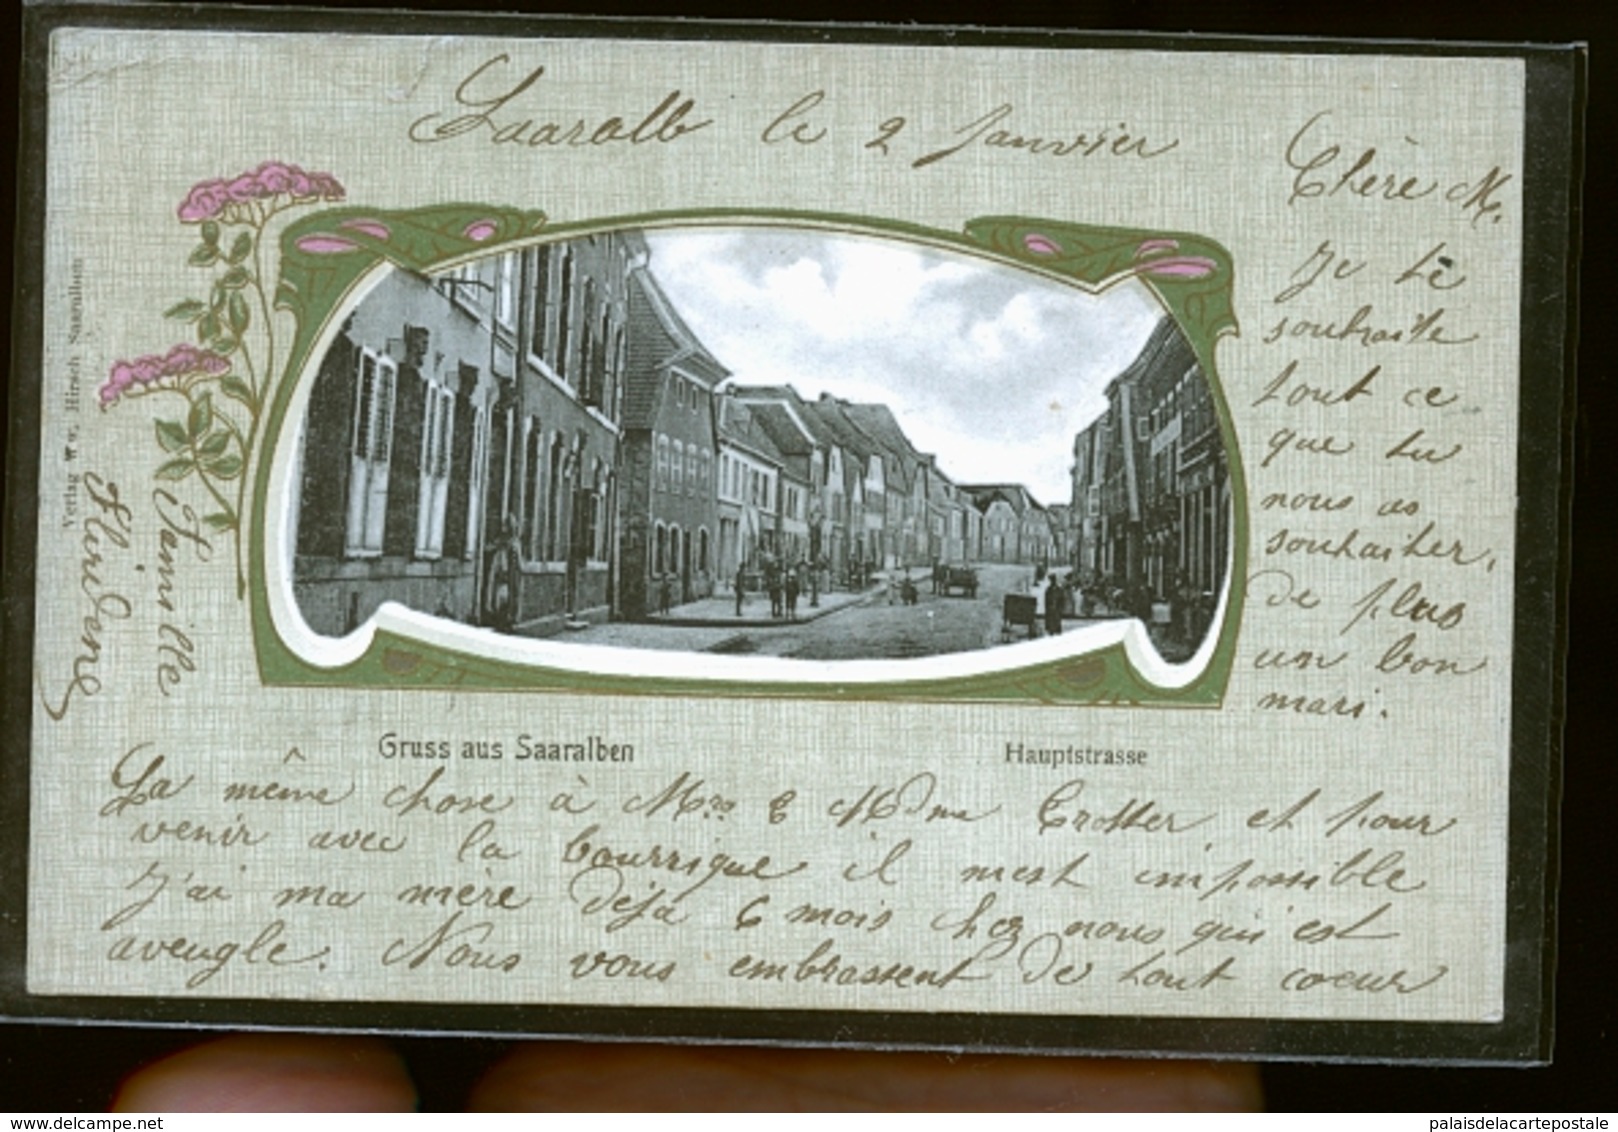 Saaralb le 2 Janvier
Chère M.
Je te
souhaite
tout ce
que tu
nous as
souhaiter,
de plus
un bon
mari.
Verlag Ww. Hirsch Saaralben
Famille
Gruss aus Saaralben
Hauptstrasse
La même chose à Mrs & Mdme Trotter et pour
venir avec la bourrique il m'est impossible
J'ai ma mère déjà 6 mois chez nous qui est
aveugle. Nous vous embrassent de tout coeur
delcampe.net
palaisdelacartepostale